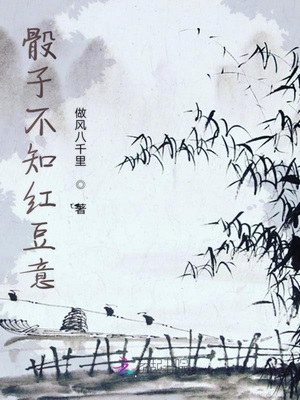 骰子不知红豆意
做风八千里
著